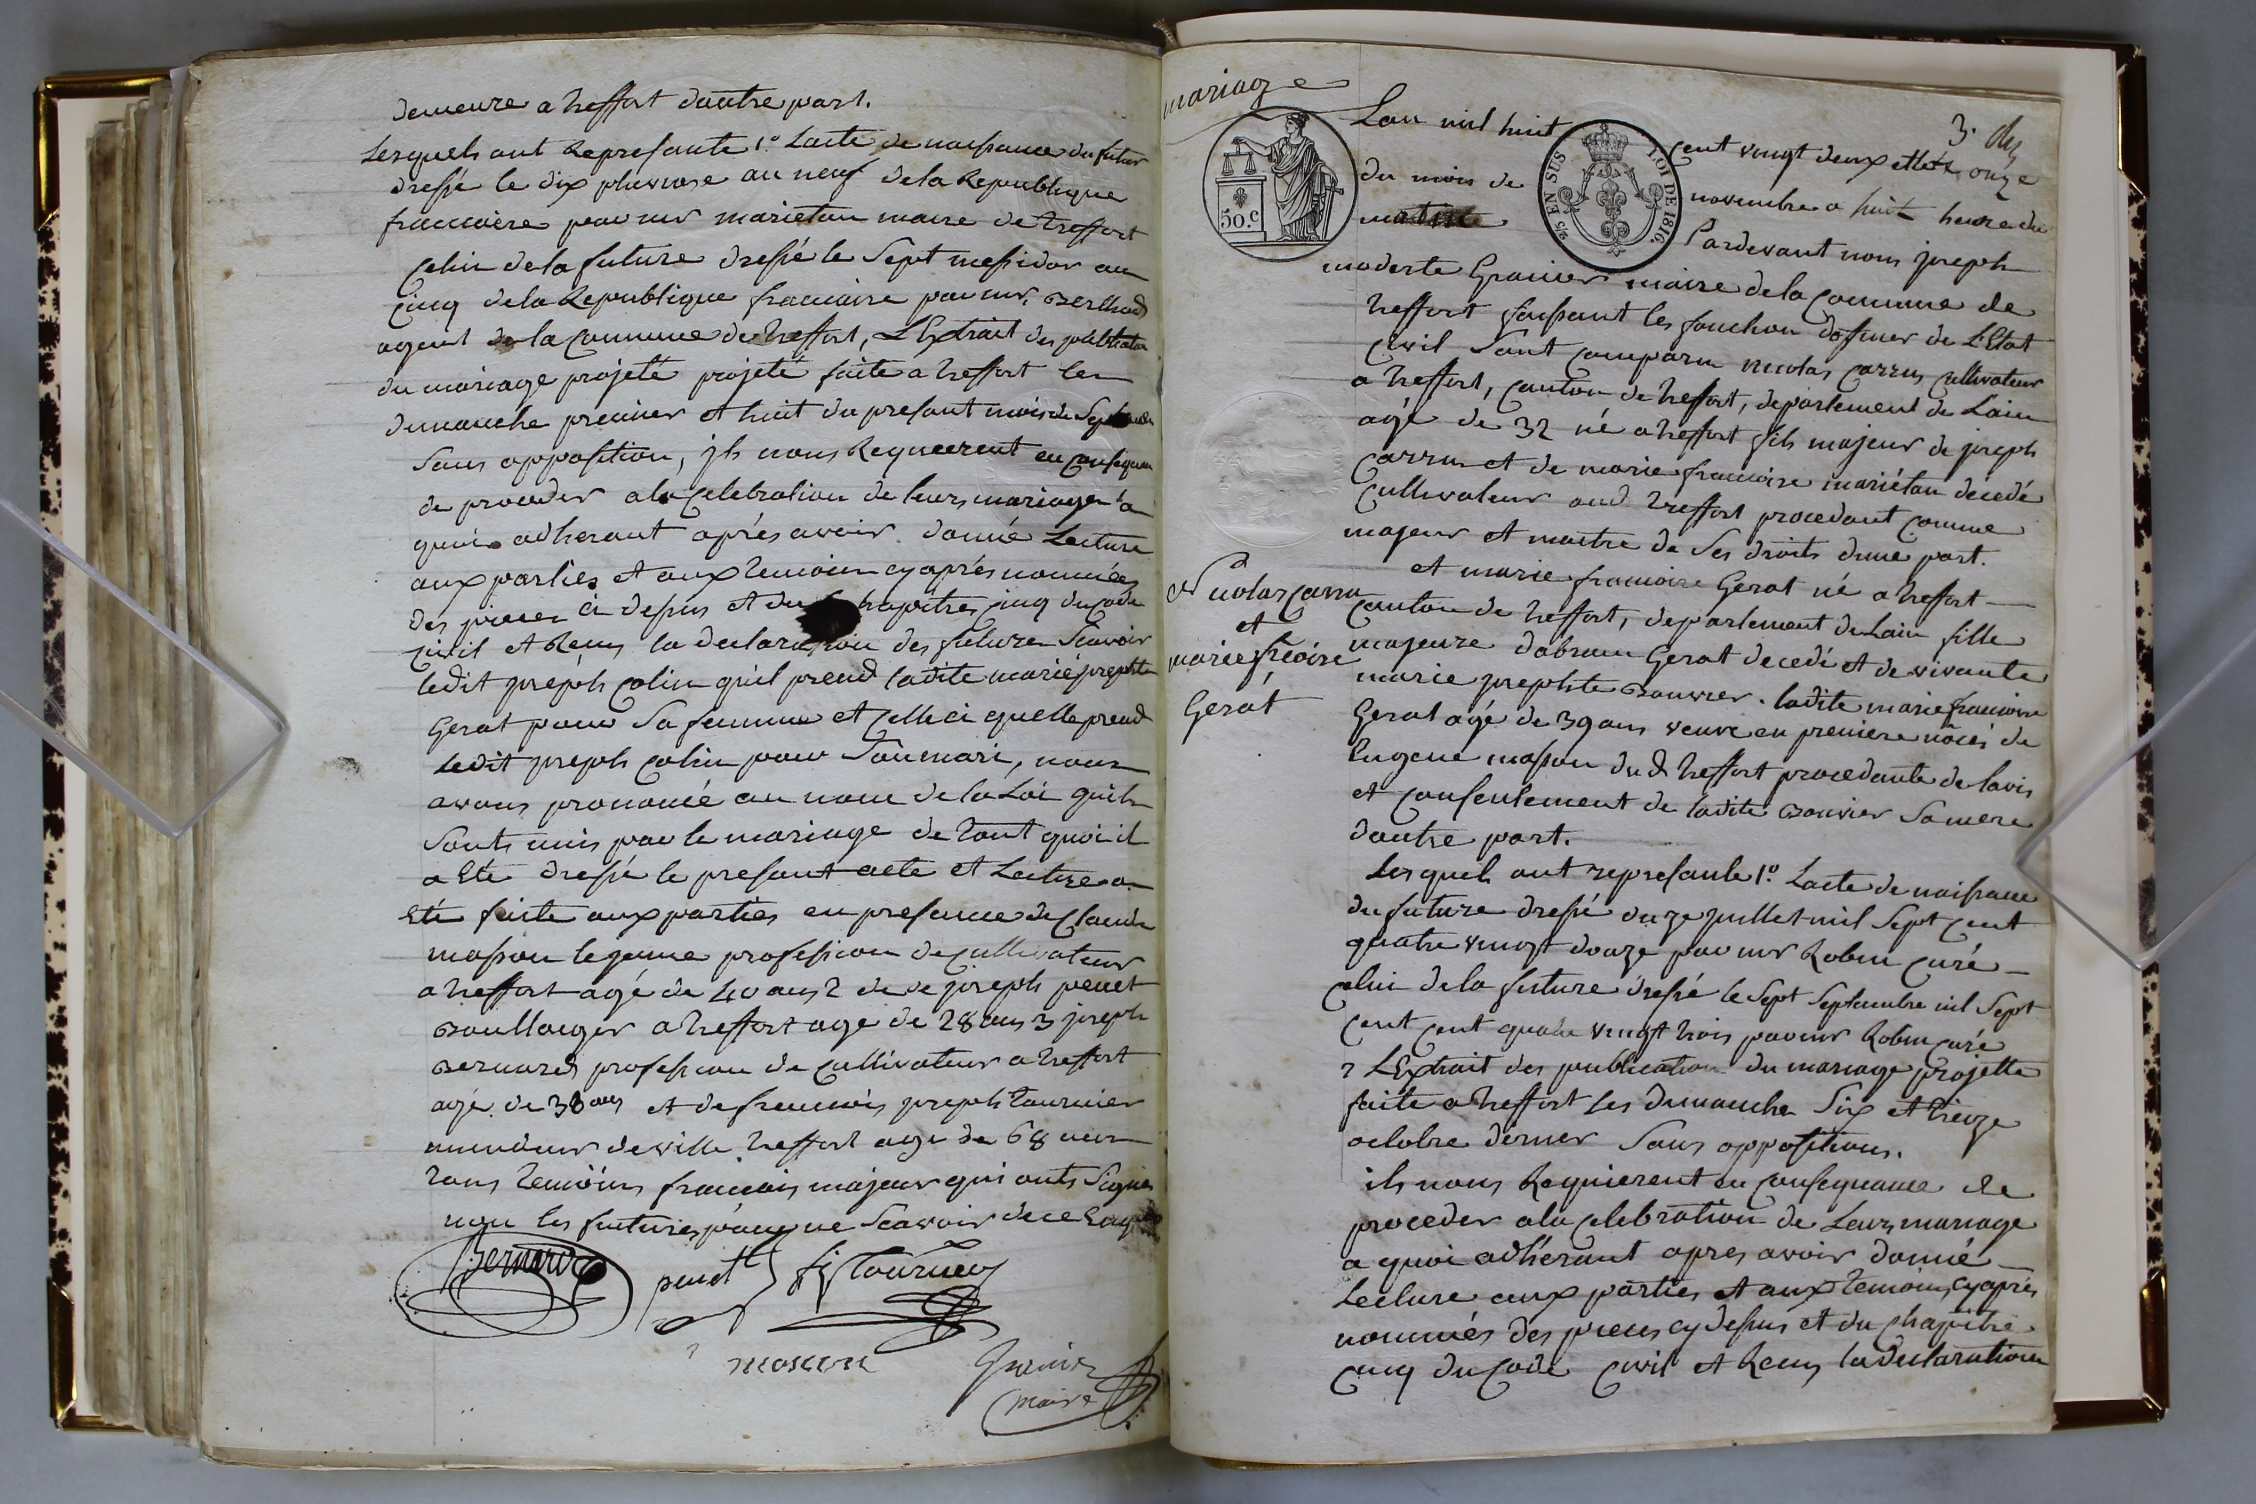 demeure a treffort dautre part.
Lesquels ont Represante 1.o Lacte de naissance du futur
dressé le dix pluviose an neuf de la Republique
francaise par mr marietan maire de treffort
Celui de la future dressé le Sept messidor an
Cinq de la Republique francaise par mr.
agent de la Commune de treffort, L'Extrait des publication
du mariage projetté projetté faite a treffort les
dimanche premier et huit du presant mois de
Sans opposition, jls nous Requierent en
de proceder a la Celebration de leurs mariage a
quoi adherant après avoir donné Lecture
aux parties et aux temoins cy après nommées
des pieces ci dessus et du Chapitre Cinq du Code
Civil et Recus la declaration des futures Scavoir
ledit joseph Colin qu'il prend ladite marie josephte
Gerat pour Sa femme et Celle ci quelle prend
Ledit joseph Colin pour Son mari, nous
avons prononcé au nom de la Loi quils
Sonts unis par le mariage de tout quoi il
a Eté dressé le presant acte et Lecture a
Eté faite aux parties en presance de Claude
masson le jeune profession de Cultivateur
a treffort agé de 40 ans 2 de joseph penet
Boullanger a treffort age de 28 ans 3 joseph
Bernard profession de Cultivateur a treffort
agé de 38 ans et de francois joseph tournier
de ville treffort age de 68 ans
tous temoins francais majeur qui onts Signés
non les futures pour ne Scavoir de ce
Bernard penet fj tournier
masson
Granier
maire
mariage
3.
50.c
25 EN SUS LOI DE 1816.
Lan mil huit Cent vingt deux et le onze
du mois de novembre a huit heure du
matin Pardevant nous joseph
modeste Granier maire de la Commune de
treffort faissant les fonction dofficier de L'Etat
Civil Sont Comparu nicolas Carru Cultivateur
a treffort, Canton de treffort, departement de Lain
agé de 32 né a treffort fils majeur de joseph
Carru et de marie francoise mariétan decedé
Cultivateur aud treffort procedant Comme
majeur et maitre de Ses droits dune part.
et marie francoise Gerat né a treffort
Nicolas Carru
et
marie fcoise
Gerat
Canton de treffort, departement de Lain fille
majeure dabram Gerat decedé et de vivante
marie josephte Bouvier. ladite marie francoise
Gerat agé de 39 ans veuve en premiere nôces de
Eugene masson dud treffort procedante de lavis
et Consentement de ladite Bouvier Sa mere
dautre part.
Lesquels ont represante 1.o Lacte de naissance
du future dressé onze juillet mil Sept Cent
quatre vingt douze par mr Robin Curé
Celui de la future dressé le Sept Septembre mil Sept
Cent Cent quatre vingt trois par mr Robin Curé
2 L'Extrait des publication du mariage projetté
faite a treffort les dimanche Six et treize
octobre dernier Sans oppositions.
ils nous Requierent en Consequance de
proceder a la Celebration de Leurs mariage
a quoi adhérant apres avoir donné
Lecture aux parties et aux temoins cy après
nommés des pieces cy dessus et du Chapitre
Cinq du Code Civil et Recus la declaration